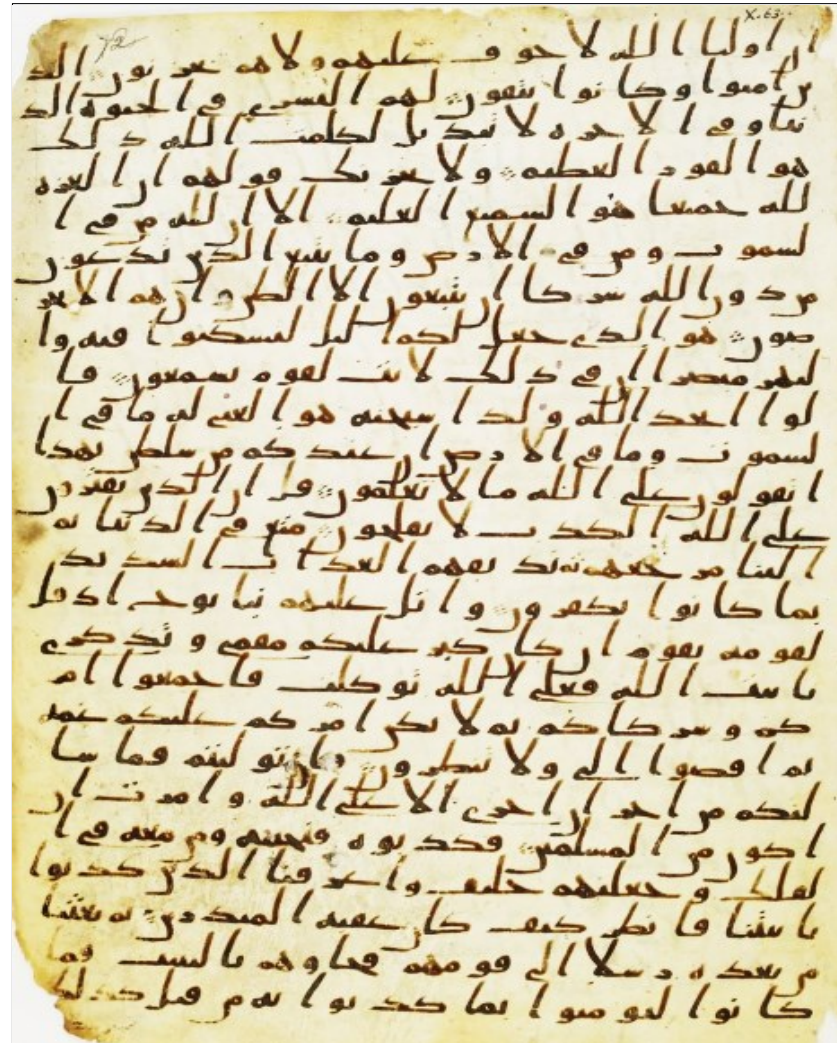 X.63.
ان اوليا الله لا خوف عليهم ولا هم يحزنون الذ
ين امنوا وكانوا يتقون لهم البشرى في الحيوه الد
نيا وفي الاخره لا تبديل لكلمت الله ذلك
هو الفوز العظيم ولا يحزنك قولهم ان العزه
لله جميعا هو السميع العليم الا ان لله من في ا
لسموت ومن في الارض وما يتبع الذين يدعون
من دون الله شركا ان يتبعون الا الظن وان هم الا يخر
صون هو الذي جعل لكم اليل لتسكنوا فيه وا
لنهر مبصرا ان في ذلك لايت لقوم يسمعون قا
لوا اتخذ الله ولدا سبحنه هو الغني له ما في ا
لسموت وما في الارض ان عندكم من سلطن بهذا
اتقولون على الله ما لا تعلمون قل ان الذين يفترون
على الله الكذب لا يفلحون متع في الدنيا ثم
الينا مرجعهم ثم نذيقهم العذاب الشديد
بما كانوا يكفرون واتل عليهم نبا نوح اذ قل
لقومه يقوم ان كان كبر عليكم مقمي وتذكري
بايت الله فعلى الله توكلت فاجمعوا امر
كم وشركاكم ثم لا يكن امركم عليكم غمه
ثم اقضوا الي ولا تنظرون فان توليتم فما سا
لتكم من اجر ان اجري الا على الله وامرت ان
اكون من المسلمين فكذبوه فنجينه ومن معه في ا
لفلك وجعلنهم خليف واغرقنا الذين كذبوا
بايتنا فانظر كيف كان عقبه المنذرين ثم بعثنا
من بعده رسلا الى قومهم فجاوهم بالبينت فما
كانوا ليومنوا بما كذبوا به من قبل كذلك